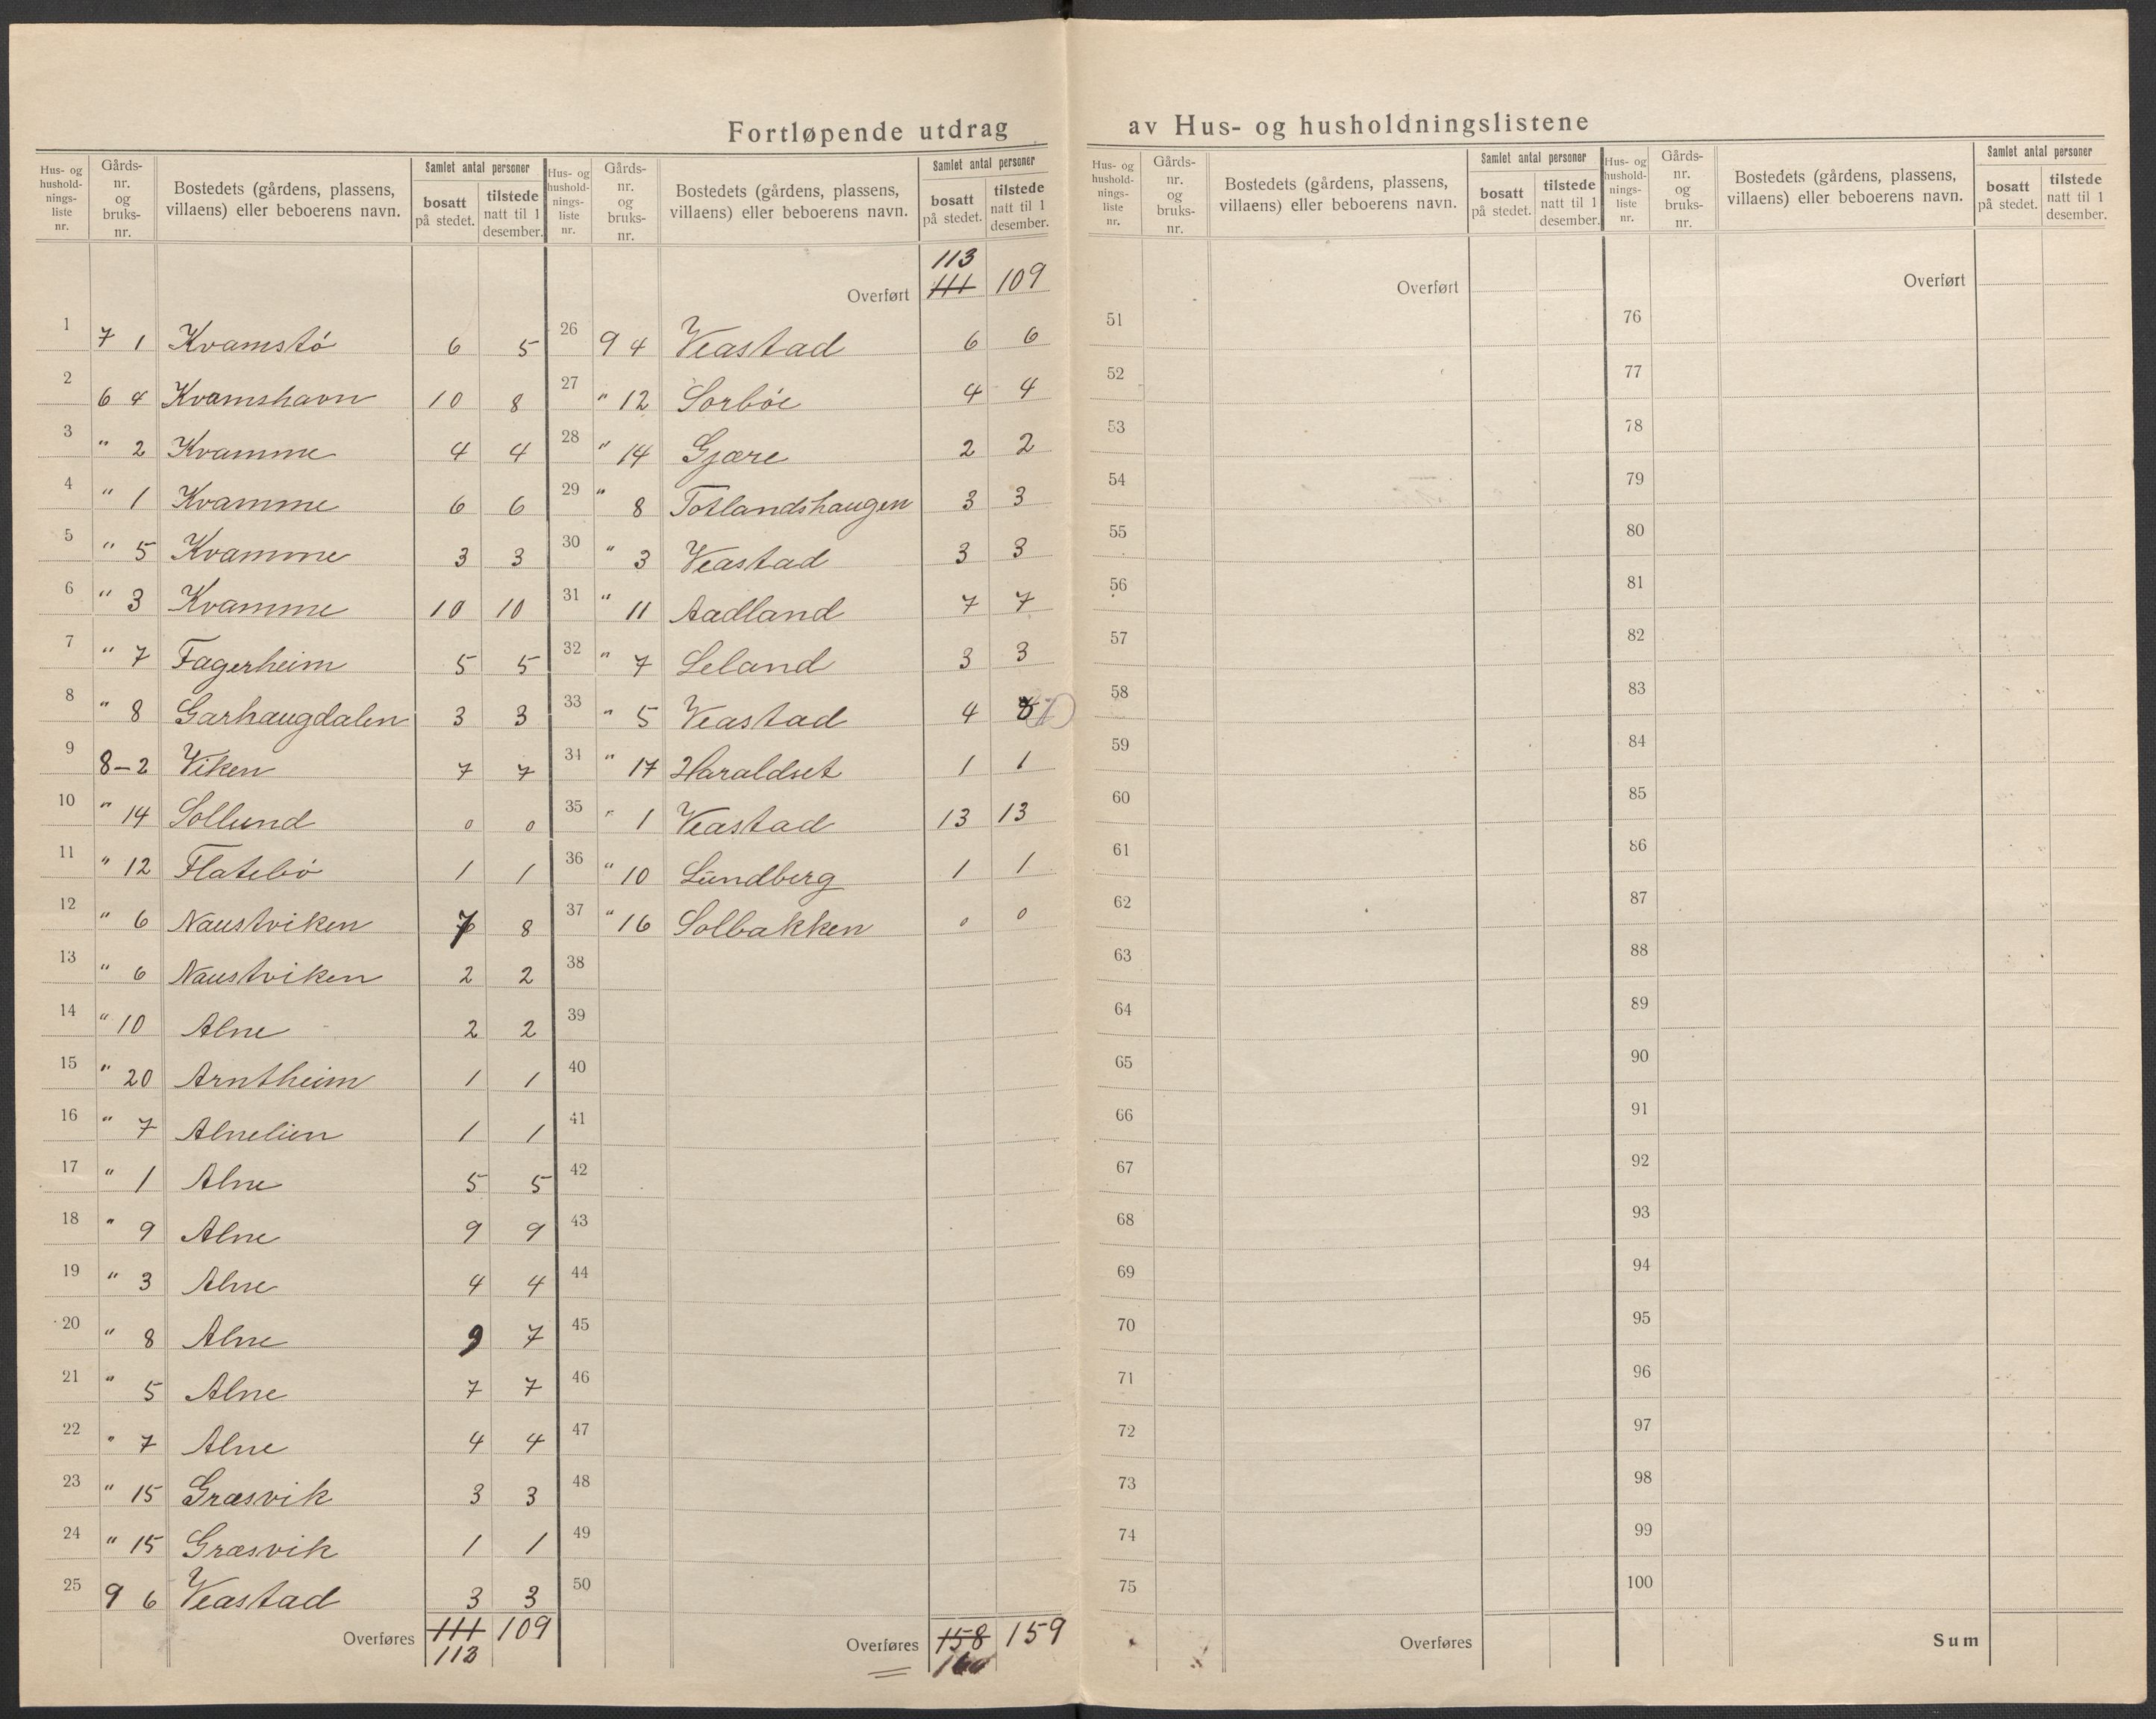 Fortløpende utdrag av Hus- og husholdningslistene
Hus- og hushold- nings- liste nr. | Gårds- nr. og bruks- nr. | Bostedets (gårdens, plassens, villaens) eller beboerens navn. | Samlet antal personer | bosatt på stedet. | tilstede natt til 1 desember.
1 | 7 1 | Kvamstø | 6 | 5
2 | 6 4 | Kvamshavn | 10 | 8
3 | " 2 | Kvamme | 4 | 4
4 | " 1 | Kvamme | 6 | 6
5 | " 5 | Kvamme | 3 | 3
6 | " 3 | Kvamme | 10 | 10
7 | " 7 | Fagerheim | 5 | 5
8 | " 8 | Garhaugdalen | 3 | 3
9 | 8-2 | Viken | 7 | 7
10 | " 14 | Sollund | 0 | 0
11 | " 12 | Flatebø | 1 | 1
12 | " 6 | Naustviken | 7 | 8
13 | " 6 | Naustviken | 2 | 2
14 | " 10 | Alne | 2 | 2
15 | " 20 | Arntheim | 1 | 1
16 | " 7 | Alnelien | 1 | 1
17 | " 1 | Alne | 5 | 5
18 | " 9 | Alne | 9 | 9
19 | " 3 | Alne | 4 | 4
20 | " 8 | Alne | 9 | 7
21 | " 5 | Alne | 7 | 7
22 | " 7 | Alne | 4 | 4
23 | " 15 | Græsvik | 3 | 3
24 | " 15 | Græsvik | 1 | 1
25 | 9 6 | Veastad | 3 | 3
Overføres | 111 | 109
113
Hus- og hushold- nings- liste nr. | Gårds- nr. og bruks- nr. | Bostedets (gårdens, plassens, villaens) eller beboerens navn. | Samlet antal personer | bosatt på stedet. | tilstede natt til 1 desember.
113
Overført | 111 | 109
26 | 9 4 | Veastad | 6 | 6
27 | " 12 | Sorbøe | 4 | 4
28 | " 14 | Gjære | 2 | 2
29 | " 8 | Totlandshaugen | 3 | 3
30 | " 3 | Veastad | 3 | 3
31 | " 11 | Aadland | 7 | 7
32 | " 7 | Leland | 3 | 3
33 | " 5 | Veastad | 4
34 | " 17 | Haraldset | 1 | 1
35 | " 1 | Veastad | 13 | 13
36 | " 10 | Lundberg | 1 | 1
37 | " 16 | Solbakken | 0 | 0
38
39
40
41
42
43
44
45
46
47
48
49
50
Overføres | 158 | 159
160
Hus- og hushold- nings- liste nr. | Gårds- nr. og bruks- nr. | Bostedets (gårdens, plassens, villaens) eller beboerens navn. | Samlet antal personer | bosatt på stedet. | tilstede natt til 1 desember.
Overført
51
52
53
54
55
56
57
58
59
60
61
62
63
64
65
66
67
68
69
70
71
72
73
74
75
Overføres
Hus- og hushold- nings- liste nr. | Gårds- nr. og bruks- nr. | Bostedets (gårdens, plassens, villaens) eller beboerens navn. | Samlet antal personer | bosatt på stedet. | tilstede natt til 1 desember.
Overført
76
77
78
79
80
81
82
83
84
85
86
87
88
89
90
91
92
93
94
95
96
97
98
99
100
Sum